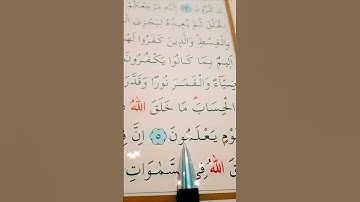 اِلَيْهِ مَرْجِعُكُمْ
الْخَلْقَ ثُمَّ يُعِيدُهُ لِيَجْزِيَ
بِالْقِسْطِ وَالَّذِينَ كَفَرُوا
اَلِيمٌ بِمَا كَانُوا يَكْفُرُونَ
ضِيَاءً وَالْقَمَرَ نُورًا وَقَدَّرَ
الْحِسَابَ مَا خَلَقَ اللّٰهُ
يَعْلَمُونَ ﴿٥﴾ اِنَّ
اللّٰهُ فِي السَّمٰوَاتِ